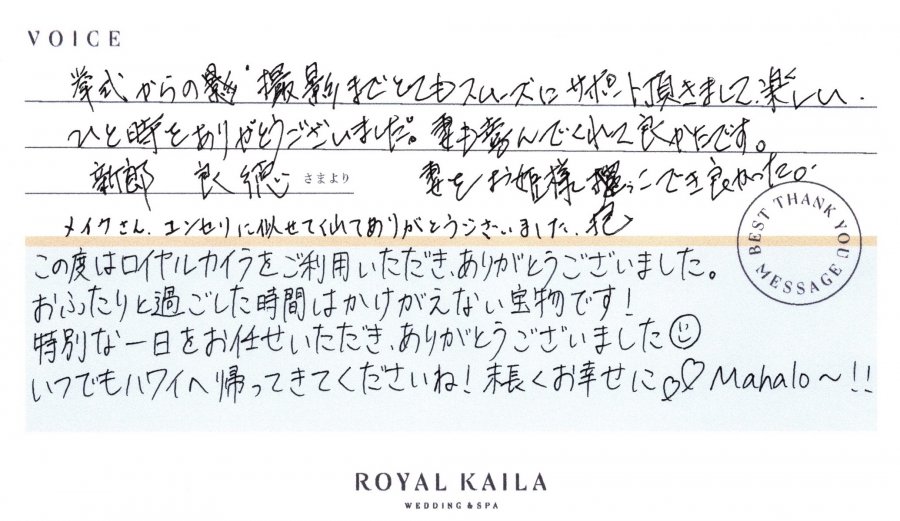 VOICE
挙式からの撮影までとてもスムーズにサポート頂きまして、楽しい
ひと時をありがとうございました。妻も喜んでくれて良かたです。
新郎 良徳 さまより 妻をお姫様抱っこでき良かった。
メイクさん、エンセリに似せてくれてありがとうございました。
BEST THANK YOU MESSAGE
この度はロイヤルカイラをご利用いただき、ありがとうございました。
おふたりと過ごした時間はかけがえない宝物です!
特別な一日をお任せいただき、ありがとうございました☺
いつでもハワイへ帰ってきてくださいね! 末長くお幸せに♡♡ Mahalo〜!!
ROYAL KAILA
WEDDING & SPA